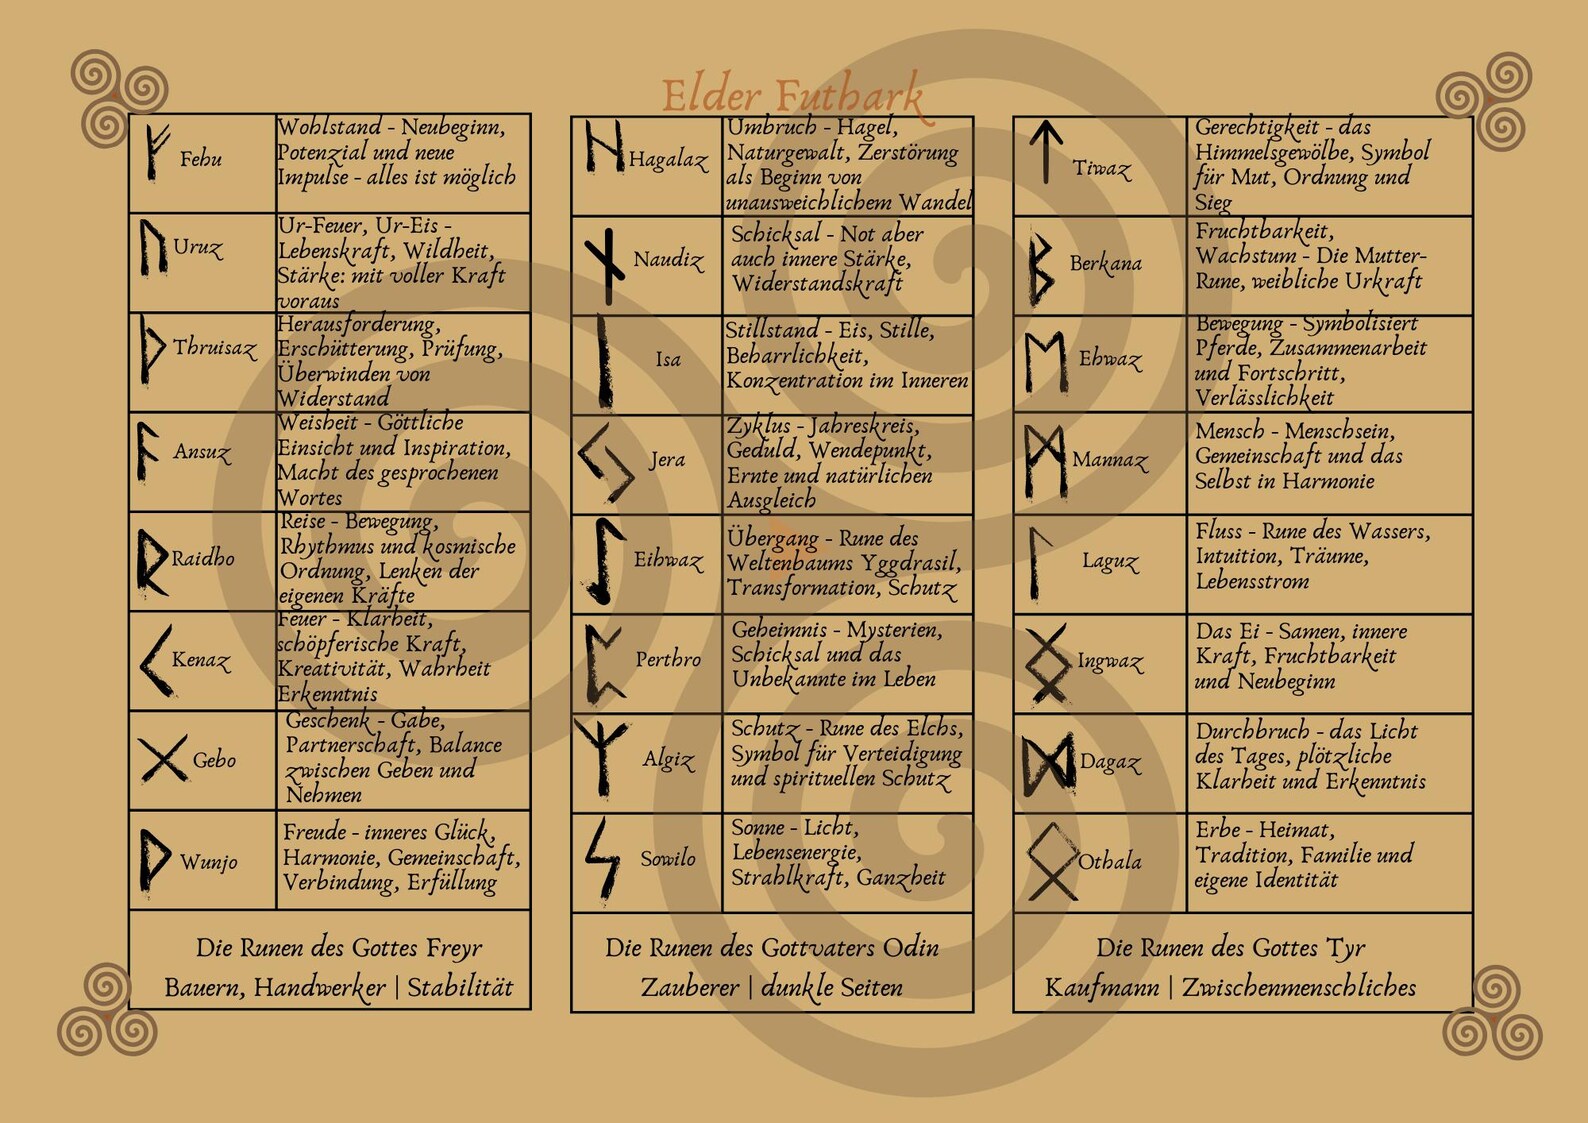 Elder Futhark
Fehu
Wohlstand - Neubeginn,
Potenzial und neue
Impulse - alles ist möglich
Uruz
Ur-Feuer, Ur-Eis -
Lebenskraft, Wildheit,
Stärke: mit voller Kraft
voraus
Thruisaz
Herausforderung,
Erschütterung, Prüfung,
Überwinden von
Widerstand
Ansuz
Weisheit - Göttliche
Einsicht und Inspiration,
Macht des gesprochenen
Wortes
Raidho
Reise - Bewegung,
Rhythmus und kosmische
Ordnung, Lenken der
eigenen Kräfte
Kenaz
Feuer - Klarheit,
schöpferische Kraft,
Kreativität, Wahrheit
Erkenntnis
Gebo
Geschenk - Gabe,
Partnerschaft, Balance
zwischen Geben und
Nehmen
Wunjo
Freude - inneres Glück,
Harmonie, Gemeinschaft,
Verbindung, Erfüllung
Die Runen des Gottes Freyr
Bauern, Handwerker | Stabilität
Hagalaz
Umbruch - Hagel,
Naturgewalt, Zerstörung
als Beginn von
unausweichlichem Wandel
Naudiz
Schicksal - Not aber
auch innere Stärke,
Widerstandskraft
Isa
Stillstand - Eis, Stille,
Beharrlichkeit,
Konzentration im Inneren
Jera
Zyklus - Jahreskreis,
Geduld, Wendepunkt,
Ernte und natürlichen
Ausgleich
Eihwaz
Übergang - Rune des
Weltenbaums Yggdrasil,
Transformation, Schutz
Perthro
Geheimnis - Mysterien,
Schicksal und das
Unbekannte im Leben
Algiz
Schutz - Rune des Elchs,
Symbol für Verteidigung
und spirituellen Schutz
Sowilo
Sonne - Licht,
Lebensenergie,
Strahlkraft, Ganzheit
Die Runen des Gottvaters Odin
Zauberer | dunkle Seiten
Tiwaz
Gerechtigkeit - das
Himmelsgewölbe, Symbol
für Mut, Ordnung und
Sieg
Berkana
Fruchtbarkeit,
Wachstum - Die Mutter-
Rune, weibliche Urkraft
Ehwaz
Bewegung - Symbolisiert
Pferde, Zusammenarbeit
und Fortschritt,
Verlässlichkeit
Mannaz
Mensch - Menschsein,
Gemeinschaft und das
Selbst in Harmonie
Laguz
Fluss - Rune des Wassers,
Intuition, Träume,
Lebensstrom
Ingwaz
Das Ei - Samen, innere
Kraft, Fruchtbarkeit
und Neubeginn
Dagaz
Durchbruch - das Licht
des Tages, plötzliche
Klarheit und Erkenntnis
Othala
Erbe - Heimat,
Tradition, Familie und
eigene Identität
Die Runen des Gottes Tyr
Kaufmann | Zwischenmenschliches